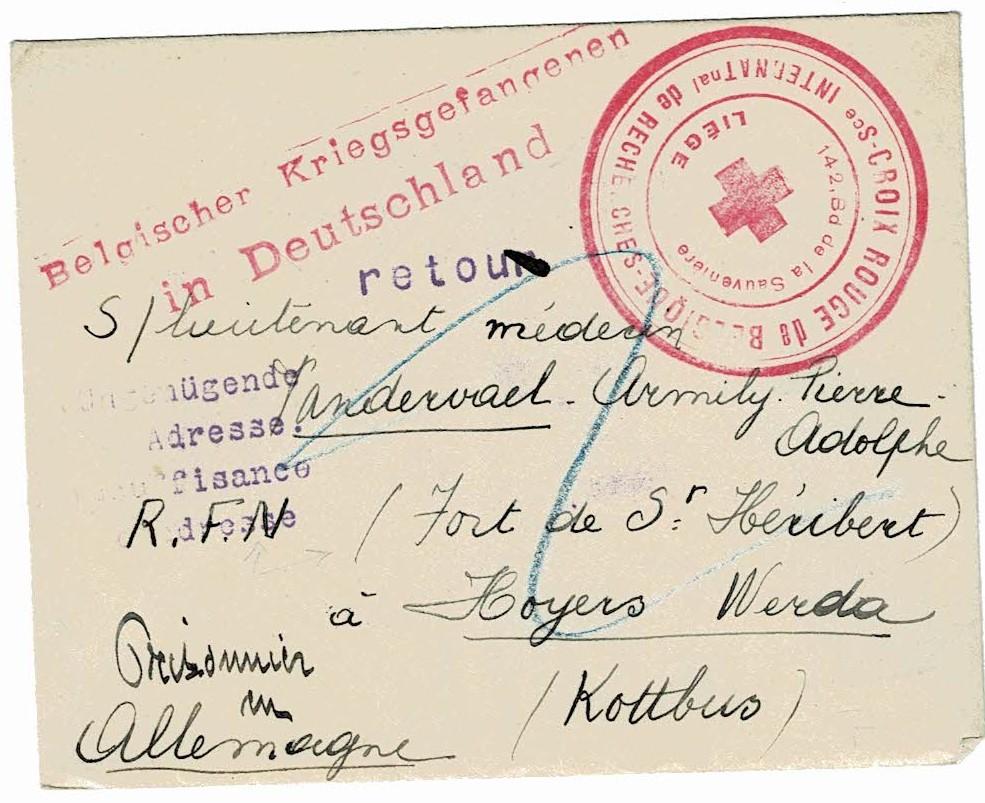 Belgischer Kriegsgefangenen
in Deutschland
CROIX ROUGE de BELGIQUE
Sce INTERNATnal de RECHERCHES
142, Bd de la Sauvenière
LIÈGE
retour
S/lieutenant médecin
Vandervael. Armily. Pierre.
Adolphe
Ungenügende
Adresse.
Insuffisance
d'adresse
R.F.N (Fort de St. Héribert)
à Hoyers Werda
(Kottbus)
Prisonnier
en
Allemagne